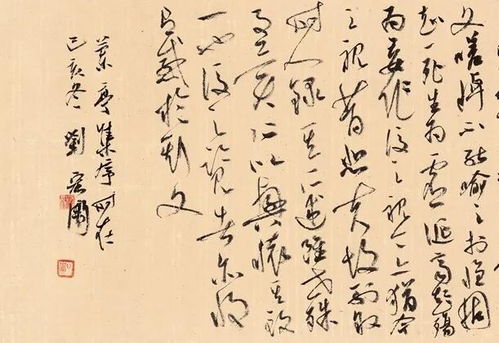 文嗟悼不能喻之於懷固
知一死生為虛誕齊彭殤
為妄作後之視今亦猶今
之視昔悲夫故列敘
時人錄其所述雖世殊
事異所以興懷其致
一也後之覽者亦將
有感於斯文
蘭亭集序時在
己亥冬劉